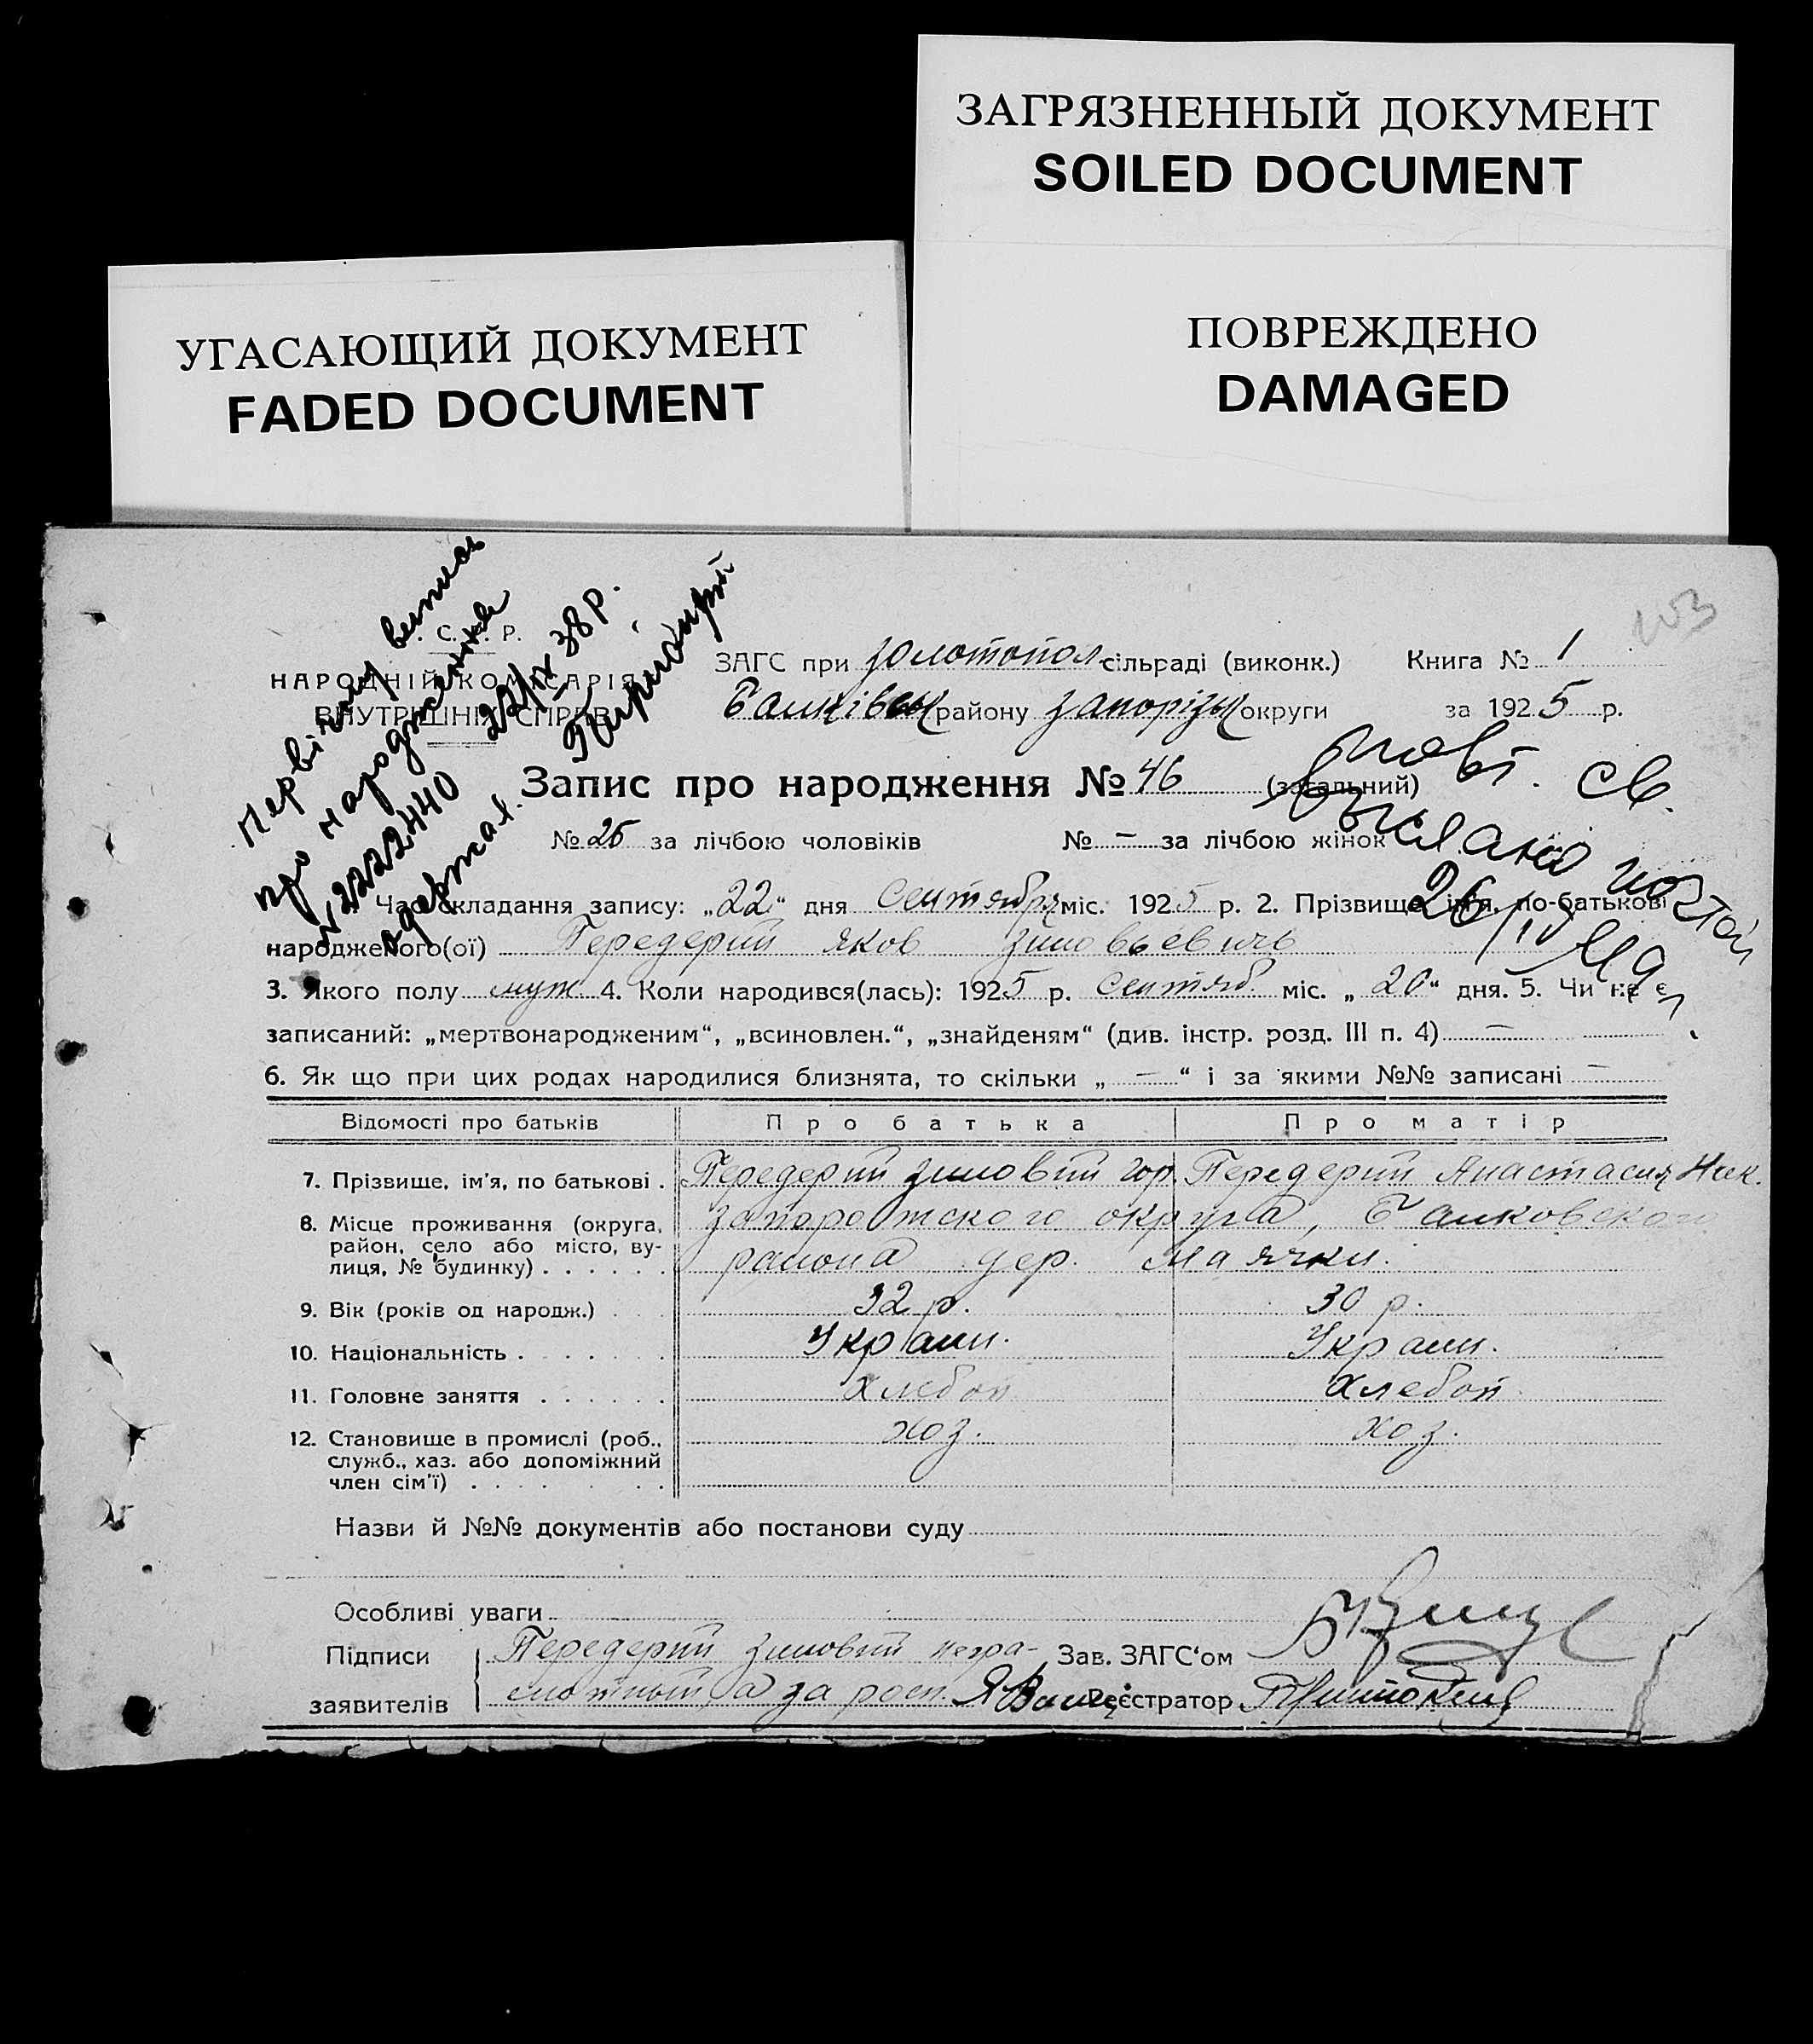 ЗАГРЯЗНЕННЫЙ ДОКУМЕНТ
SOILED DOCUMENT
УГАСАЮЩИЙ ДОКУМЕНТ
FADED DOCUMENT
ПОВРЕЖДЕНО
DAMAGED
103
Первічну випись
про народження
№ 2222440 22/IX 38 р.
адержал.
С. Р.
НАРОДНІЙ КОМІСАРІЯТ
ВНУТРІШНІХ СПРАВ
ЗАГС при Золотопол. сільраді (виконк.) Книга № 1
району Запорізьк округи за 1925 р.
Запис про народження № 46 (загальний)
№ 25 за лічбою чоловіків № — за лічбою жінок
Повт. св.
выслано почтой
26/IV
Час складання запису: „22“ дня Сентября міс. 1925 р. 2. Прізвище, ім'я, по-батькові
народженого(ої) Передерий Яков Зиновьевичь
3. Якого полу муж. 4. Коли народився(лась): 1925 р. Сентяб. міс. „20“ дня. 5. Чи не є
записаний: „мертвонародженим“, „всиновлен.“, „знайденям“ (див. інстр. розд. III п. 4) —
6. Як що при цих родах народилися близнята, то скільки „—“ і за якими №№ записані —
Відомості про батьків Про батька Про матір
7. Прізвище, ім'я, по батькові . Передерий Зиновий Гор. Передерий Анастасия Ник.
8. Місце проживання (округа, Запорожского округа, Балковского
район, село або місто, ву-
лиця, № будинку) . . . . . . района дер. Маячки.
9. Вік (років од народж.) . . 32 р. 30 р.
10. Національність . . . . . . Украин. Украин.
11. Головне заняття . . . . . . Хлебоп Хлебоп.
12. Становище в промислі (роб., хоз. хоз.
служб., хаз. або допоміжний
член сім'ї) . . . . . . . .
Назви й №№ документів або постанови суду
Особливі уваги
Підписи Передерий Зиновий негра- Зав. ЗАГС'ом
заявителів мотный а за росп. Реєстратор